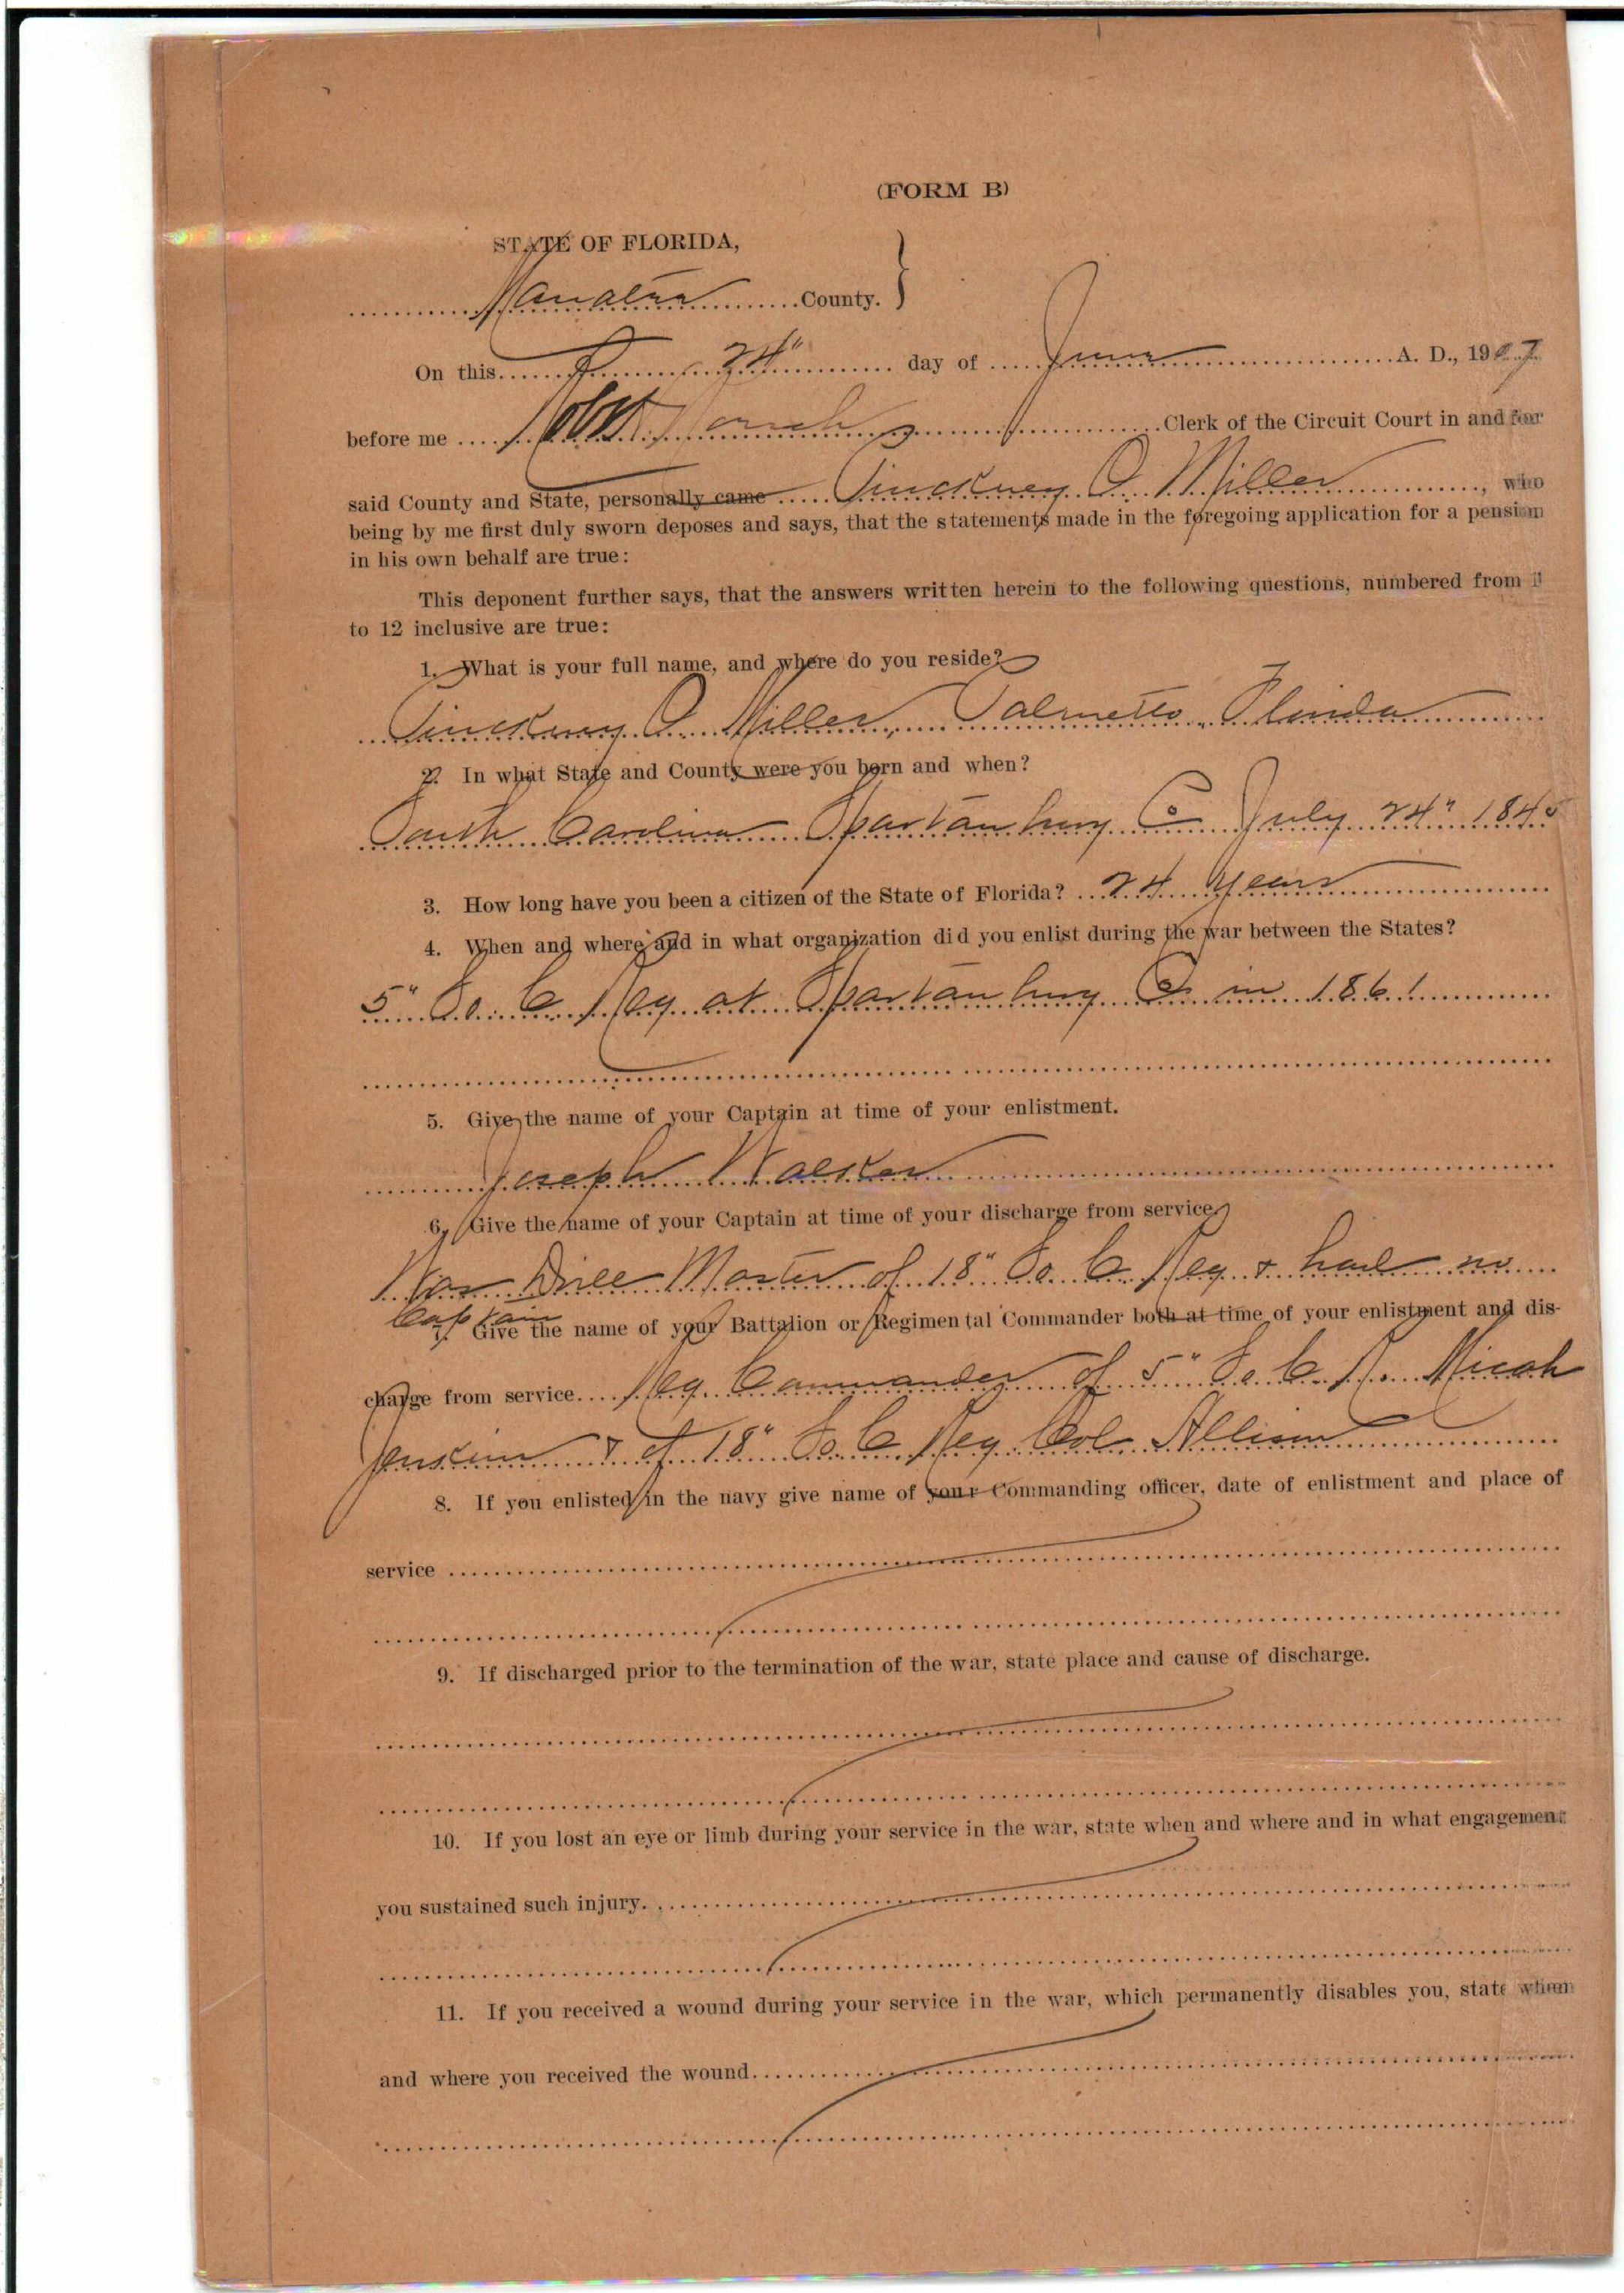 (FORM B)
STATE OF FLORIDA,
Manatee County.
On this 24" day of June A. D., 1907
before me Robt Clerk of the Circuit Court in and for
said County and State, personally came Pinckney O. Miller, who
being by me first duly sworn deposes and says, that the statements made in the foregoing application for a pension
in his own behalf are true:
This deponent further says, that the answers written herein to the following questions, numbered from 1
to 12 inclusive are true:
1. What is your full name, and where do you reside?
Pinckney O. Miller, Palmetto, Florida
2. In what State and County were you born and when?
South Carolina Spartanburg Co July 24" 1845
3. How long have you been a citizen of the State of Florida? 24 years
4. When and where and in what organization did you enlist during the war between the States?
5" So. C. Reg at Spartanburg Co in 1861
5. Give the name of your Captain at time of your enlistment.
Joseph Walker
6. Give the name of your Captain at time of your discharge from service.
Was Drill Master of 18" So. C. Reg & had no
Captain
7. Give the name of your Battalion or Regimental Commander both at time of your enlistment and dis-
charge from service. Reg. Commander of 5" So. C. R. Micah
Jenkins & of 18" So. C. Reg Col. Allison
8. If you enlisted in the navy give name of your Commanding officer, date of enlistment and place of
service
9. If discharged prior to the termination of the war, state place and cause of discharge.
10. If you lost an eye or limb during your service in the war, state when and where and in what engagement
you sustained such injury.
11. If you received a wound during your service in the war, which permanently disables you, state when
and where you received the wound.